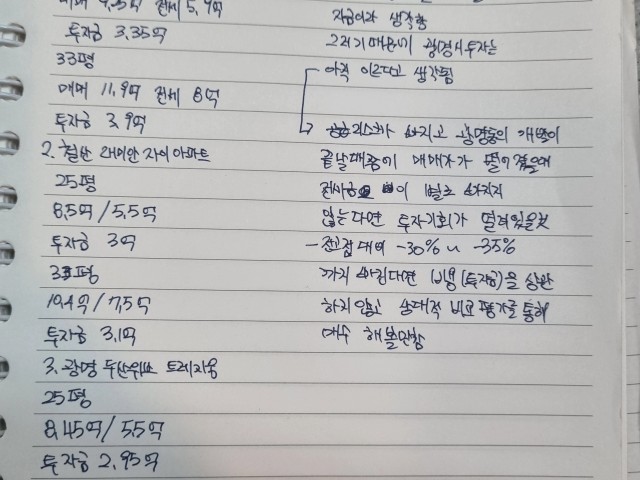 매매 9.25억 전세 5.9억
투자금 3.35억
33평
매매 11.9억 전세 8억
투자금 3.9억
2. 철산 래미안 자이 아파트
25평
8.5억 / 5.5억
투자금 3억
33평
10.4억 / 7.5억
투자금 3.1억
3. 광명 두산위브 트레지움
25평
8.45억 / 5.5억
투자금 2.95억
생각함
그렇기 때문에 광명시 투자는
아직 이르다고 생각됨
리스크가 빠지고 광명동의 개발이
끝날때쯤에 매매가가 떨어졌을때
전세금이 별로 빠지지
않는다면 투자기회가 열려있을 것
- 전고점 대비 -30% ~ -35%
까지 빠진다면 비용(투자금)을 상관
하지 않고 상대적 비교평가를 통해
매수 해볼만함